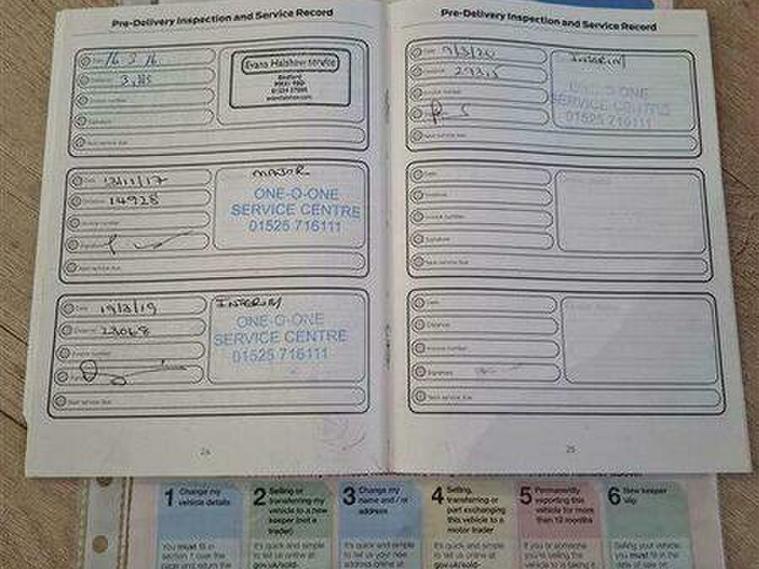 Pre-Delivery Inspection and Service Record
Date 16 3 16
Evans Halshaw service
Bedford
Distance
Invoice number
Signature
Next service due
Date 13/11/17
MAJOR
Distance 14928
ONE-O-ONE
SERVICE CENTRE
01525 716111
Invoice number
Signature
Next service due
Date 19/3/19
INTERIM
Distance 23068
ONE-O-ONE
SERVICE CENTRE
01525 716111
Invoice number
Next service due
24
Pre-Delivery Inspection and Service Record
Date 9/3/20
INTERIM
Distance
ONE-O-ONE
SERVICE CENTRE
01525 716111
Invoice number
Next service due
Date
Distance
Invoice number
Signature
Next service due
Date
Distance
Invoice number
Signature
Next service due
25
1 Change my
vehicle details
You must fill in
section 1 over the
page and return the
2 Selling or
transferring my
vehicle to a new
keeper (not a
trader)
It's quick and simple
to tell us online at
gov.uk/sold-
3 Change my
name and / or
address
It's quick and simple
to tell us your new
address online at
4 Selling,
transferring or
part exchanging
this vehicle to a
motor trader
It's quick and simple
to tell us online at
gov.uk/sold-
5 Permanently
exporting this
vehicle for more
than 12 months
If you or someone
you're selling the
vehicle to is taking it
6 New keeper
slip
Selling your vehicle,
you must fill in the
date of sale on